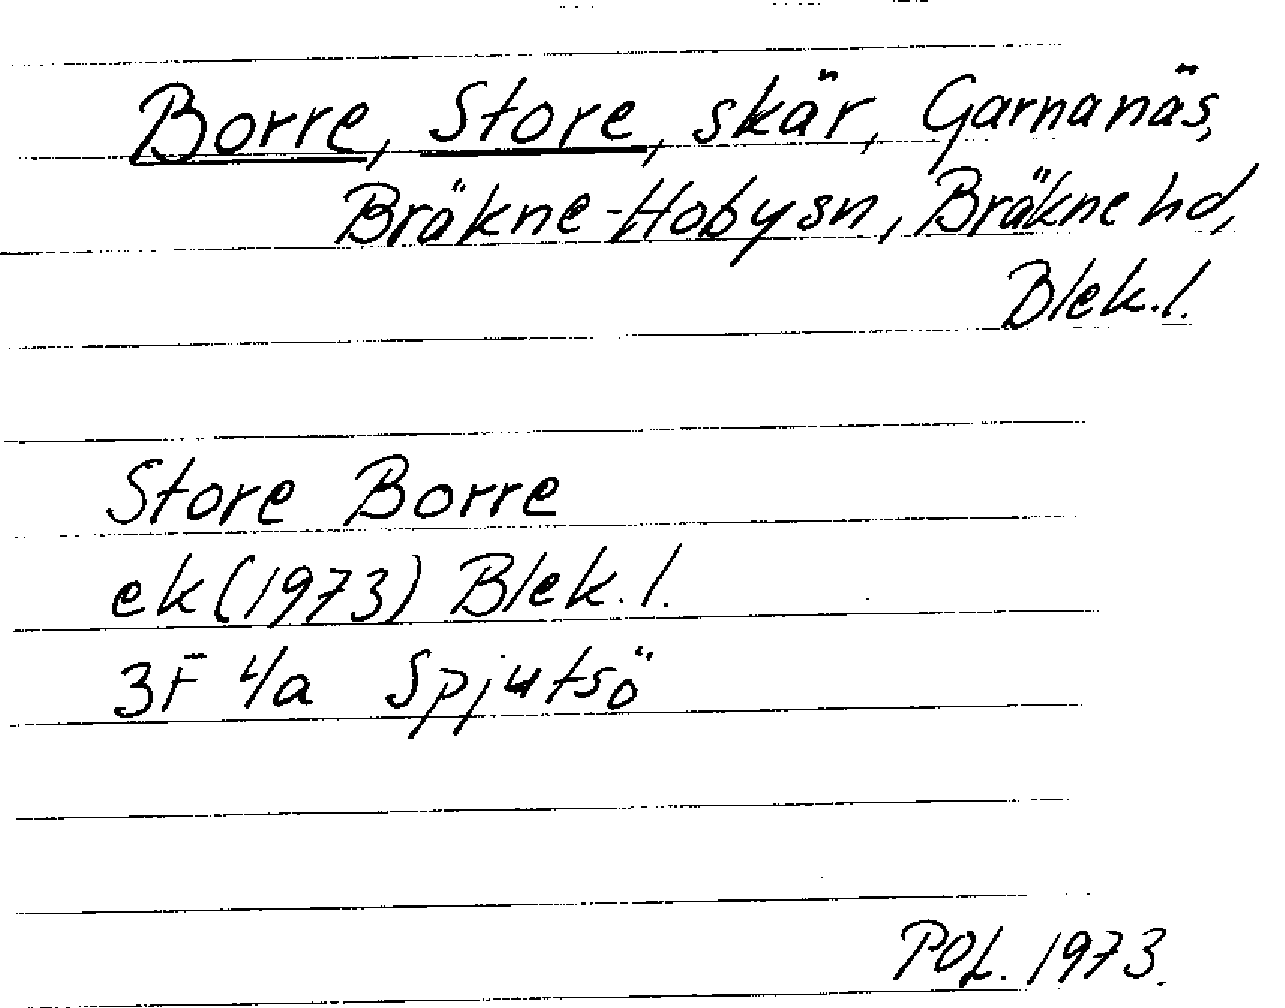 Borre, Store, skär, Garnanäs,
Bräkne-Hoby sn, Bräkne hd,
Blek. l.
Store Borre
ek (1973) Blek. l.
3F 4/a Spjutsö
POL. 1973.